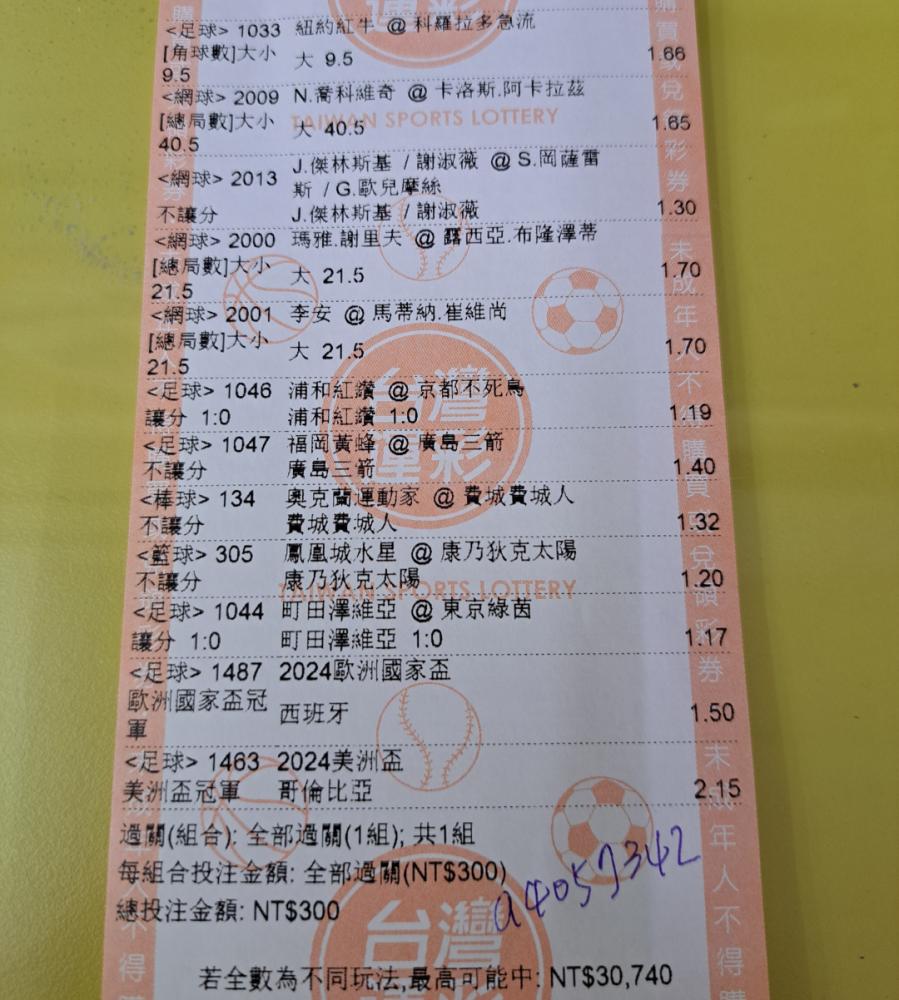 <足球> 1033 紐約紅牛 @ 科羅拉多急流
[角球數]大小 9.5 大 9.5 1.66
<網球> 2009 N.喬科維奇 @ 卡洛斯.阿卡拉茲
TAIWAN SPORTS LOTTERY
[總局數]大小 40.5 大 40.5 1.65
<網球> 2013 J.傑林斯基 / 謝淑薇 @ S.岡薩雷
斯 / G.歐兒摩絲
不讓分 J.傑林斯基 / 謝淑薇 1.30
<網球> 2000 瑪雅.謝里夫 @ 露西亞.布隆澤蒂
[總局數]大小 21.5 大 21.5 1.70
<網球> 2001 李安 @ 馬蒂納.崔維尚
[總局數]大小 21.5 大 21.5 1.70
<足球> 1046 浦和紅鑽 @ 京都不死鳥
讓分 1:0 浦和紅鑽 1:0 1.19
台灣運彩
<足球> 1047 福岡黃蜂 @ 廣島三箭
不讓分 廣島三箭 1.40
<棒球> 134 奧克蘭運動家 @ 費城費城人
不讓分 費城費城人 1.32
<籃球> 305 鳳凰城水星 @ 康乃狄克太陽
不讓分 康乃狄克太陽 1.20
TAIWAN SPORTS LOTTERY
<足球> 1044 町田澤維亞 @ 東京綠茵
讓分 1:0 町田澤維亞 1:0 1.17
<足球> 1487 2024歐洲國家盃
歐洲國家盃冠
軍 西班牙 1.50
<足球> 1463 2024美洲盃
美洲盃冠軍 哥倫比亞 2.15
過關(組合): 全部過關(1組); 共1組
每組合投注金額: 全部過關(NT$300)
總投注金額: NT$300
a4057342
台灣
若全數為不同玩法,最高可能中: NT$30,740